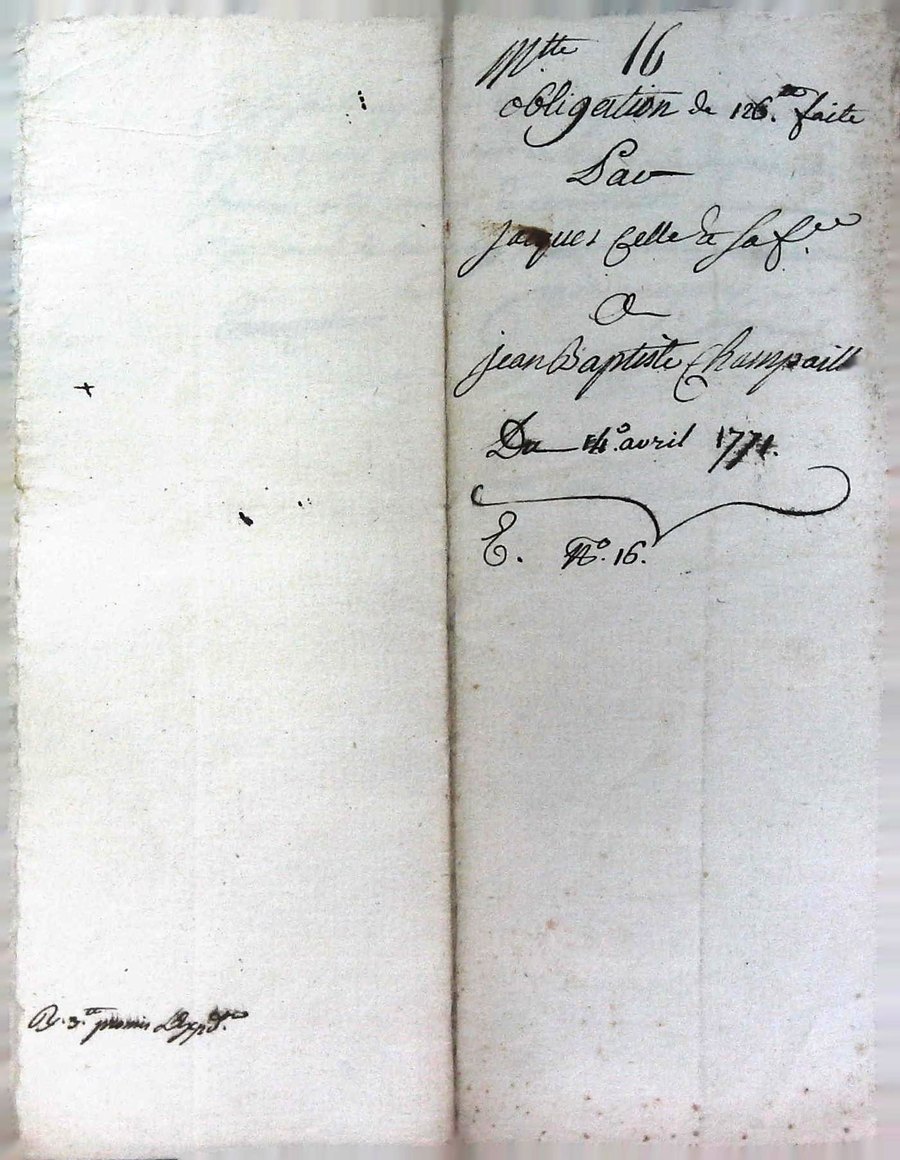 Mtte 16
obligation de 126.tt faite
Par
jacques Celle & sa fe
A
jean Baptiste Champaill
Du 14.e avril 1771.
E. No. 16.
R. 3.tt promis L'Exp.